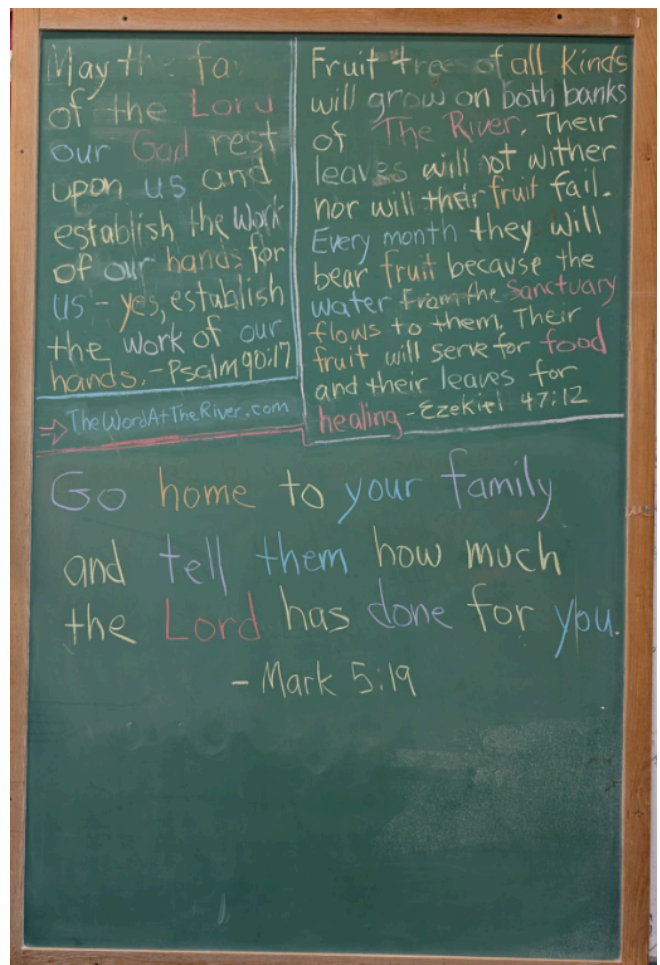 May the fa
of the Lord
our God rest
upon us and
establish the work
of our hands for
us - yes, establish
the work of our
hands. - Psalm 90:17
TheWordAtTheRiver.com
Fruit tree of all kinds
will grow on both banks
of The River. Their
leaves will not wither
nor will their fruit fail.
Every month they will
bear fruit because the
water from the Sanctuary
flows to them. Their
fruit will serve for food
and their leaves for
healing - Ezekiel 47:12
Go home to your family
and tell them how much
the Lord has done for you.
- Mark 5:19